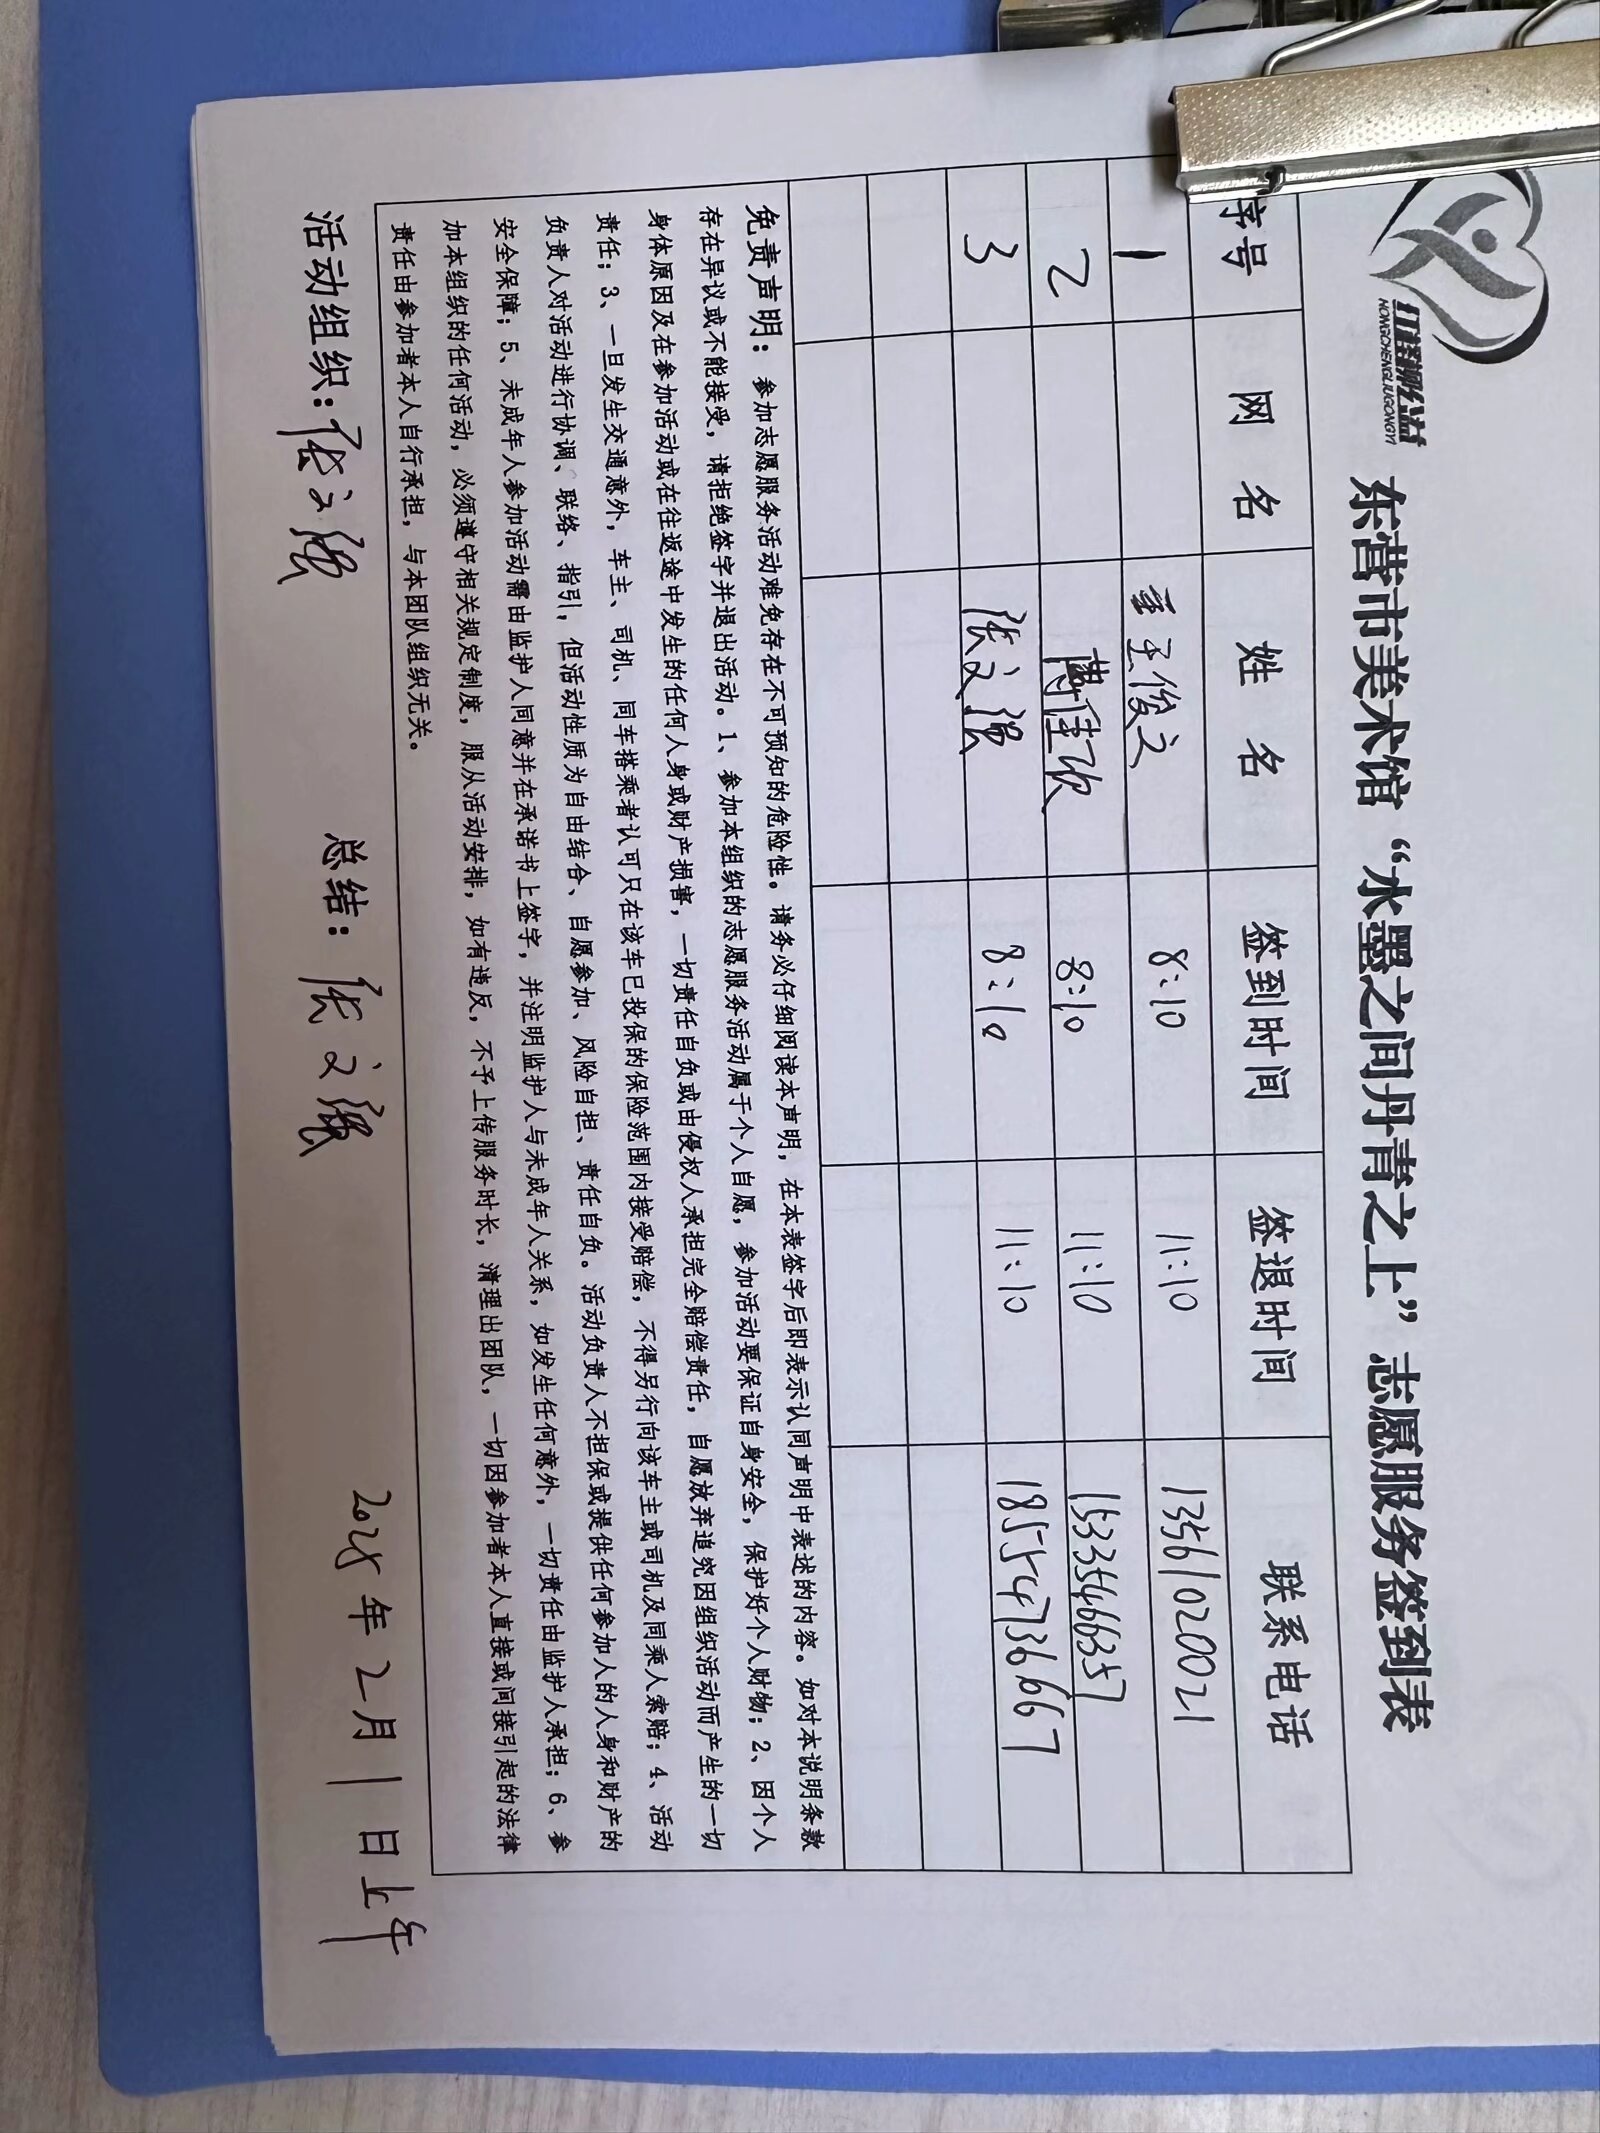 HONGCHENGLIUGONGYI
东营市美术馆“水墨之间丹青之上”志愿服务签到表
序号 网名 姓名 签到时间 签退时间 联系电话
1 王俊文 8:10 11:10 13561020021
2 8:10 11:10 15335466357
3 张文强 8:10 11:10 18554736667
免责声明：参加志愿服务活动难免存在不可预知的危险性。请务必仔细阅读本声明，在本表签字后即表示认同声明中表述的内容。如对本说明条款
存在异议或不能接受，请拒绝签字并退出活动。1、参加本组织的志愿服务活动属于个人自愿，参加活动要保证自身安全，保护好个人财物；2、因个人
身体原因及在参加活动或在往返途中发生的任何人身或财产损害，一切责任自负或由侵权人承担完全赔偿责任，自愿放弃追究因组织活动而产生的一切
责任；3、一旦发生交通意外，车主、司机、同车搭乘者认可只在该车已投保的保险范围内接受赔偿，不得另行向该车主或司机及同乘人索赔；4、活动
负责人对活动进行协调、联络、指引，但活动性质为自由结合、自愿参加、风险自担、责任自负。活动负责人不担保或提供任何参加人的人身和财产的
安全保障；5、未成年人参加活动需由监护人同意并在承诺书上签字，并注明监护人与未成年人关系，如发生任何意外，一切责任由监护人承担；6、参
加本组织的任何活动，必须遵守相关规定制度，服从活动安排，如有违反，不予上传服务时长，清理出团队，一切因参加者本人直接或间接引起的法律
责任由参加者本人自行承担，与本团队组织无关。
活动组织：张文强 总结：张文强 年2月1日上午